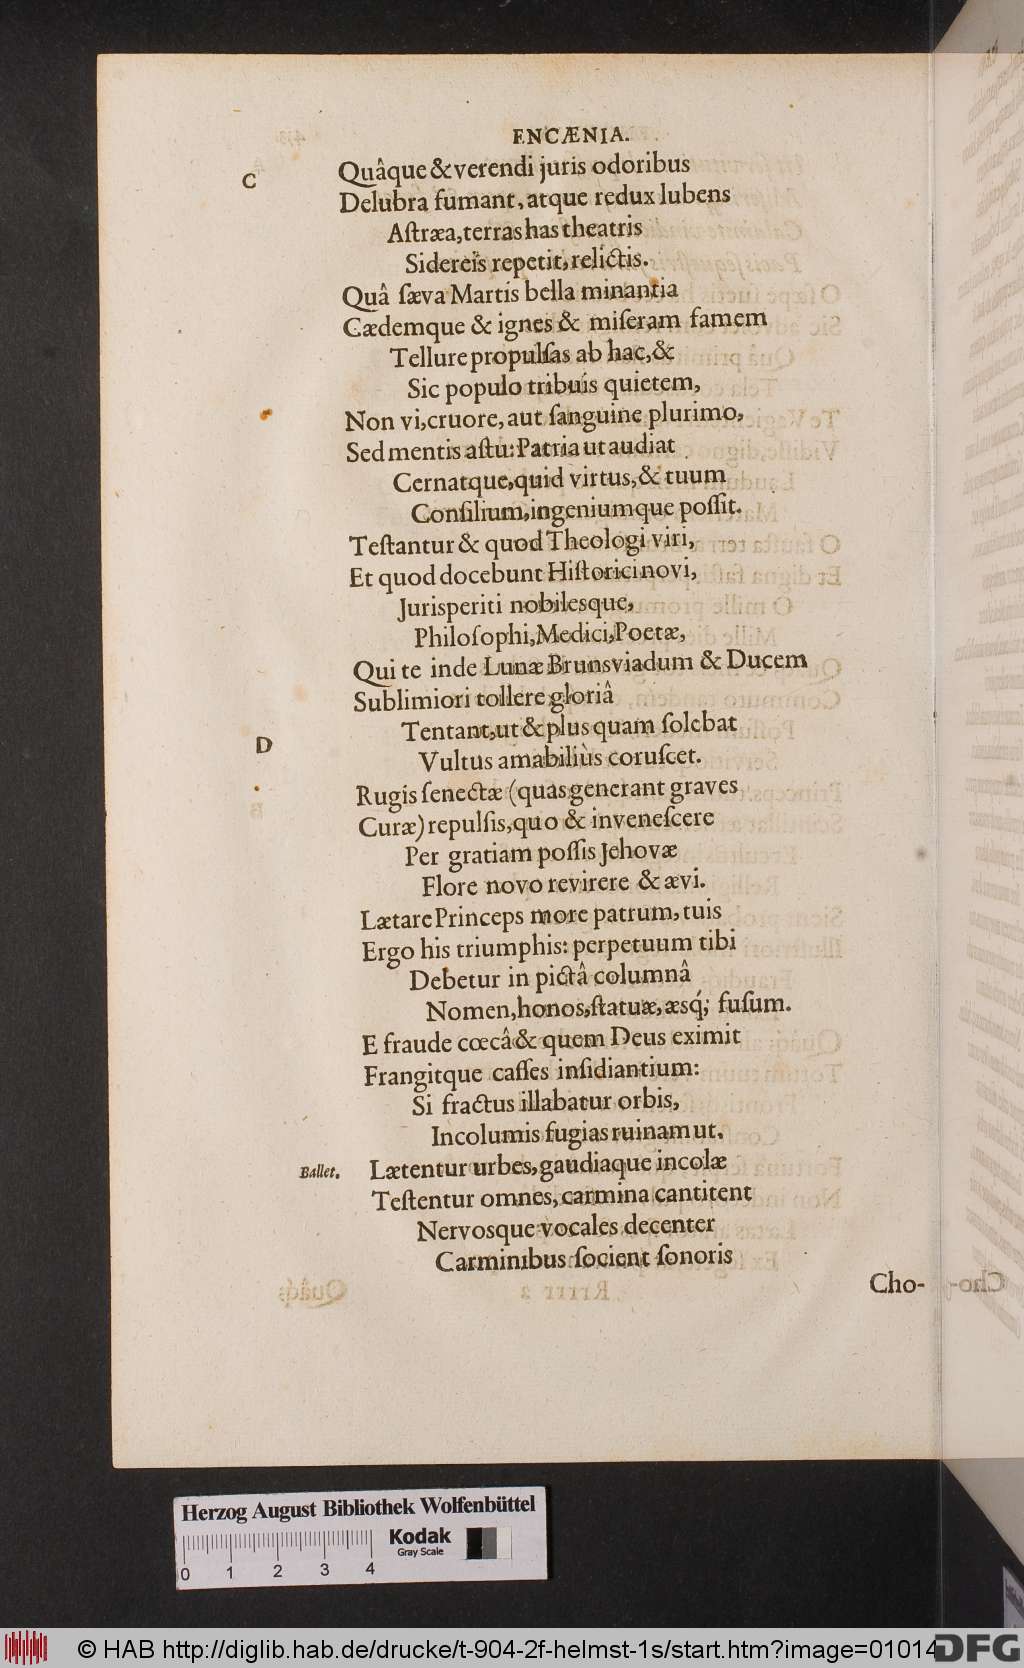 ENCÆNIA.
C
Quâque & verendi juris odoribus
Delubra fumant, atque redux lubens
Aſtræa, terras has theatris
Sidereis repetit, relictis.
Quâ ſæva Martis bella minantia
Cædemque & ignes & miſeram famem
Tellure propulſas ab hac, &
Sic populo tribuis quietem,
Non vi, cruore, aut ſanguine plurimo,
Sed mentis aſtu: Patria ut audiat
Cernatque, quid virtus, & tuum
Conſilium, ingeniumque poſſit.
Teſtantur & quod Theologi viri,
Et quod docebunt Hiſtorici novi,
Jurisperiti nobilesque,
Philoſophi, Medici, Poetæ,
Qui te inde Lunæ Brunsviadum & Ducem
Sublimiori tollere gloriâ
Tentant, ut & plus quam ſolebat
D
Vultus amabiliùs coruſcet.
Rugis ſenectæ (quas generant graves
Curæ) repulſis, quo & inveneſcere
Per gratiam poſſis Jehovæ
Flore novo revirere & ævi.
Lætare Princeps more patrum, tuis
Ergo his triumphis: perpetuum tibi
Debetur in pictâ columnâ
Nomen, honos, ſtatuæ, æsq́; fuſum.
E fraude cœcâ & quem Deus eximit
Frangitque caſſes inſidiantium:
Si fractus illabatur orbis,
Incolumis fugias ruinam ut.
Ballet. Lætentur urbes, gaudiaque incolæ
Teſtentur omnes, carmina cantitent
Nervosque vocales decenter
Carminibus ſocient ſonoris
Cho-
Herzog August Bibliothek Wolfenbüttel
Kodak
Gray Scale
0 1 2 3 4
© HAB http://diglib.hab.de/drucke/t-904-2f-helmst-1s/start.htm?image=01014
DFG